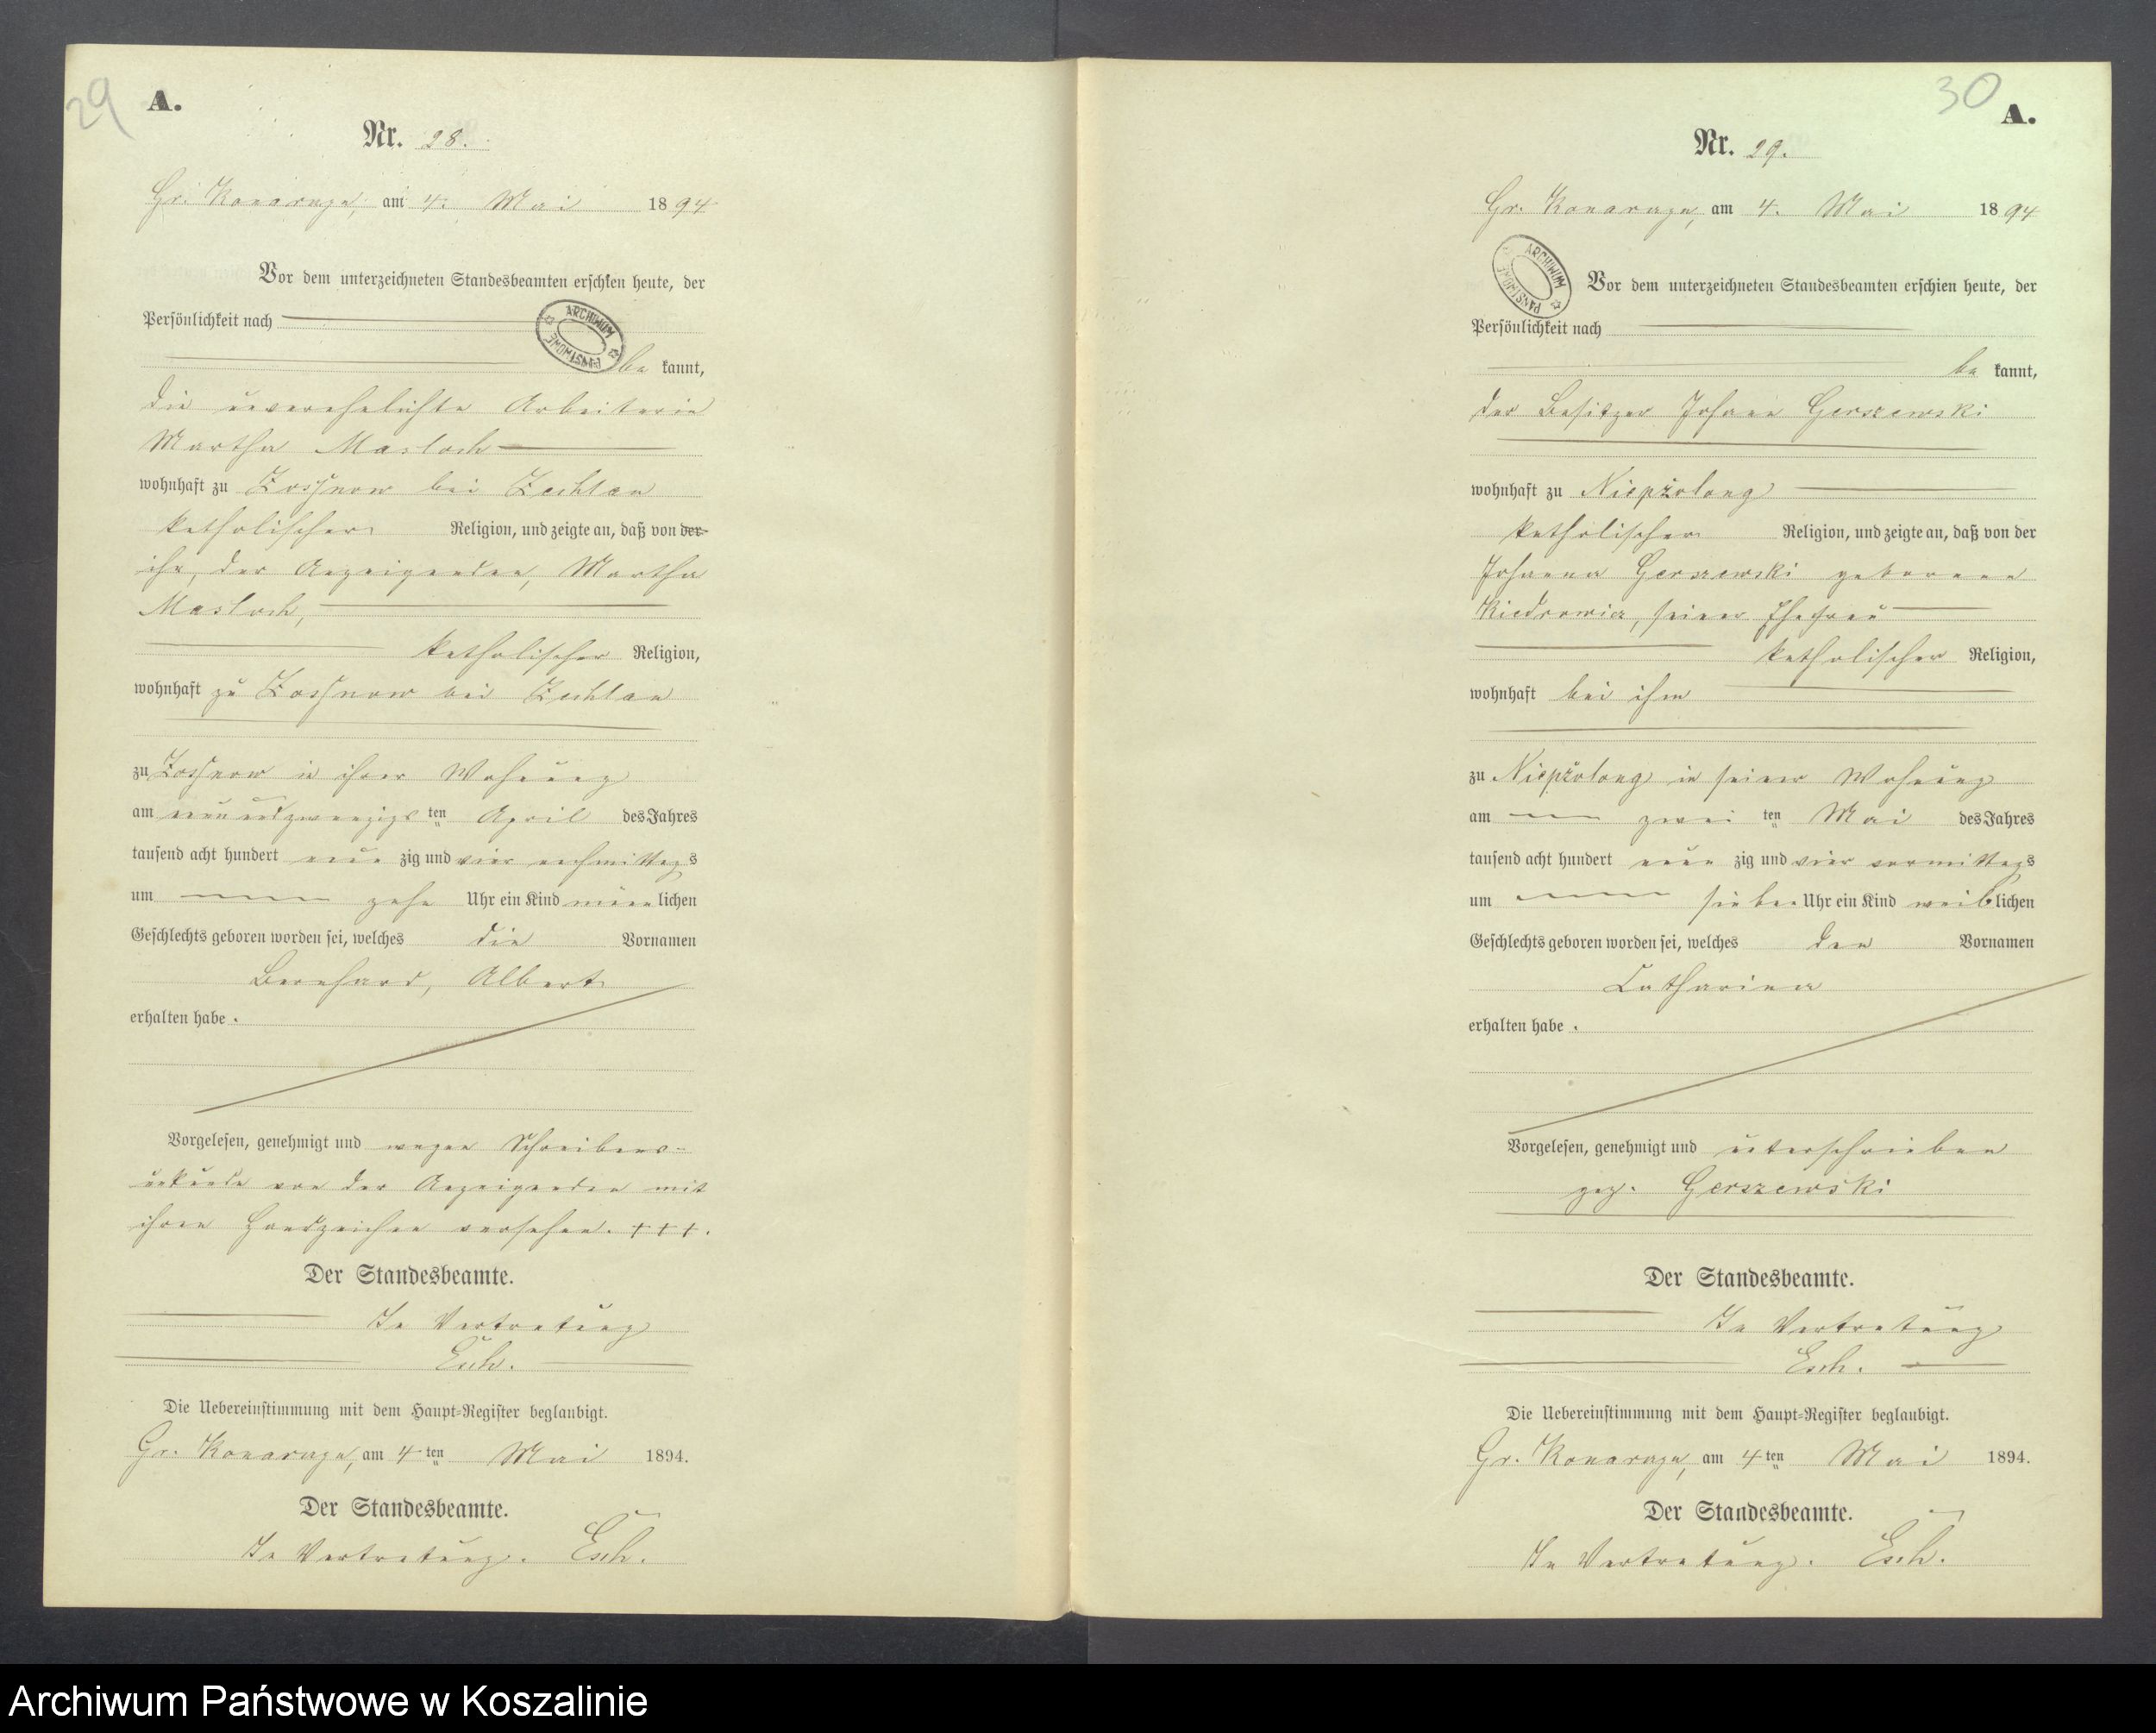 29
A.
Nr. 28.
Gr. Konarzyn, am 4. Mai 1894
Vor dem unterzeichneten Standesbeamten erschien heute, der
Persönlichkeit nach
ARCHIWUM PAŃSTWOWE
be kannt,
die unverehelichte Arbeiterin
Martha Masloch
wohnhaft zu Zossnow bei Zechlau
katholischer Religion, und zeigte an, daß von der
ihr, der Anzeigenden, Martha
Masloch,
katholischer Religion,
wohnhaft zu Zossnow bei Zechlau
zu Zossnow in ihrer Wohnung
am neunundzwanzigsten April des Jahres
tausend acht hundert neun zig und vier nachmittags
um zehn Uhr ein Kind männlichen
Geschlechts geboren worden sei, welches die Vornamen
Bernhard, Albert
erhalten habe.
Vorgelesen, genehmigt und wegen Schreibens-
unkunde von der Anzeigenden mit
ihren Handzeichen versehen. + + +.
Der Standesbeamte.
In Vertretung
Esch.
Die Uebereinstimmung mit dem Haupt-Register beglaubigt.
Gr. Konarzyn, am 4ten Mai 1894.
Der Standesbeamte.
In Vertretung. Esch.
30
A.
Nr. 29.
Gr. Konarzyn, am 4. Mai 1894
ARCHIWUM PAŃSTWOWE
Vor dem unterzeichneten Standesbeamten erschien heute, der
Persönlichkeit nach
be kannt,
der Besitzer Johann Gerszewski
wohnhaft zu Niepszolong
katholischer Religion, und zeigte an, daß von der
Johanna Gerszewski geborenen
Kiedrowicz, seiner Ehefrau
katholischer Religion,
wohnhaft bei ihm
zu Niepszolong in seiner Wohnung
am zwei ten Mai des Jahres
tausend acht hundert neun zig und vier vormittags
um sieben Uhr ein Kind weiblichen
Geschlechts geboren worden sei, welches den Vornamen
Catharina
erhalten habe.
Vorgelesen, genehmigt und unterschrieben
gez. Gerszewski
Der Standesbeamte.
In Vertretung
Esch.
Die Uebereinstimmung mit dem Haupt-Register beglaubigt.
Gr. Konarzyn, am 4ten Mai 1894.
Der Standesbeamte.
In Vertretung. Esch.
Archiwum Państwowe w Koszalinie